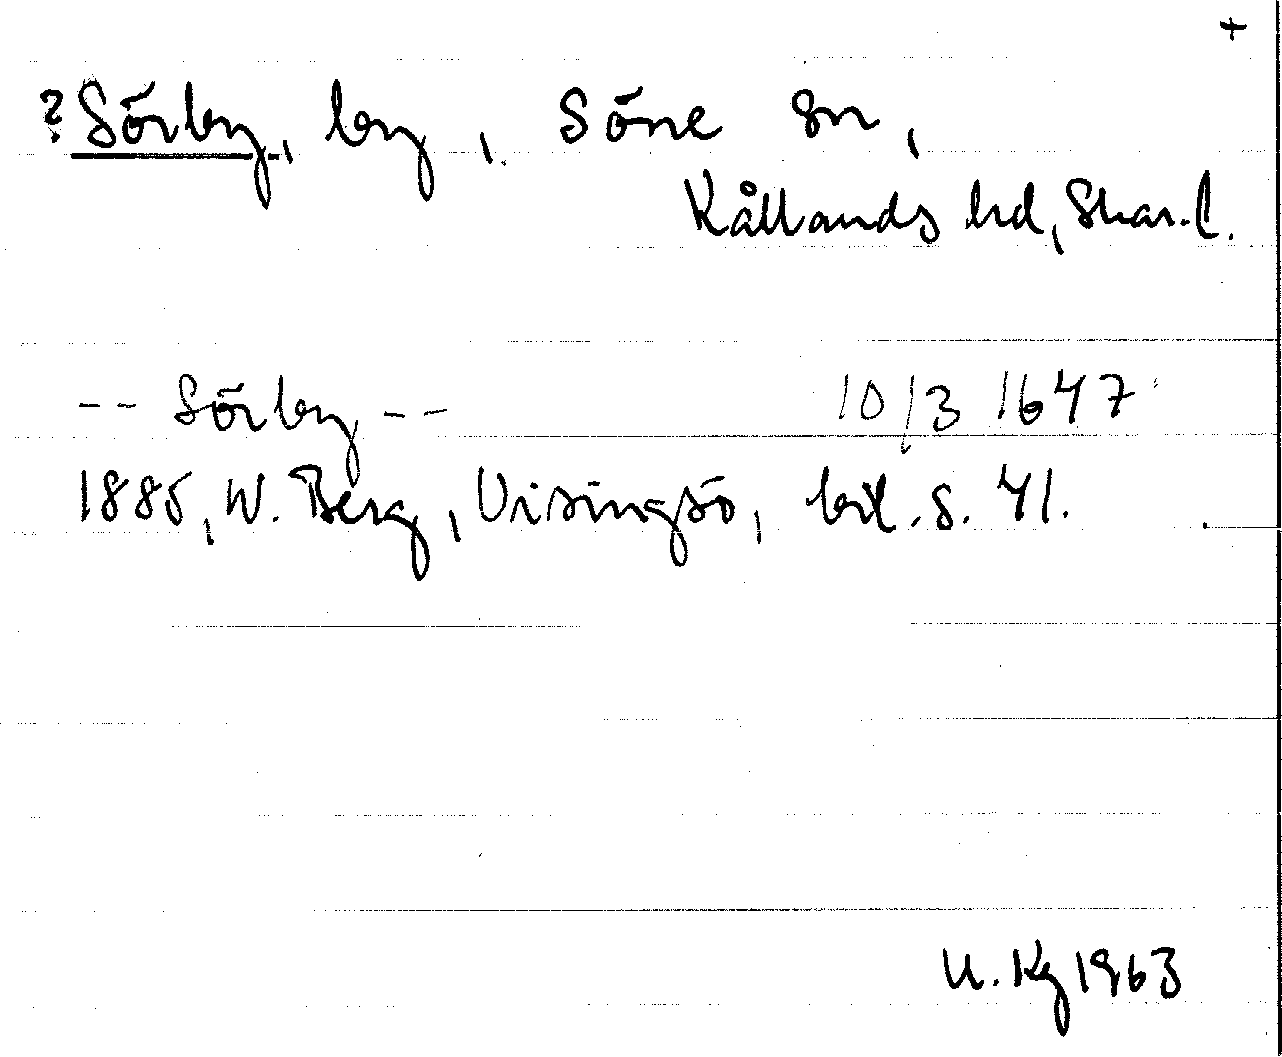 +
? Sörby, by, Söne sn,
Kållands hd, Skar. l.
-- Sörby -- 10/3 1647
1885, W. Berg, Visingsö, bil. s. 41.
U. Kg 1963